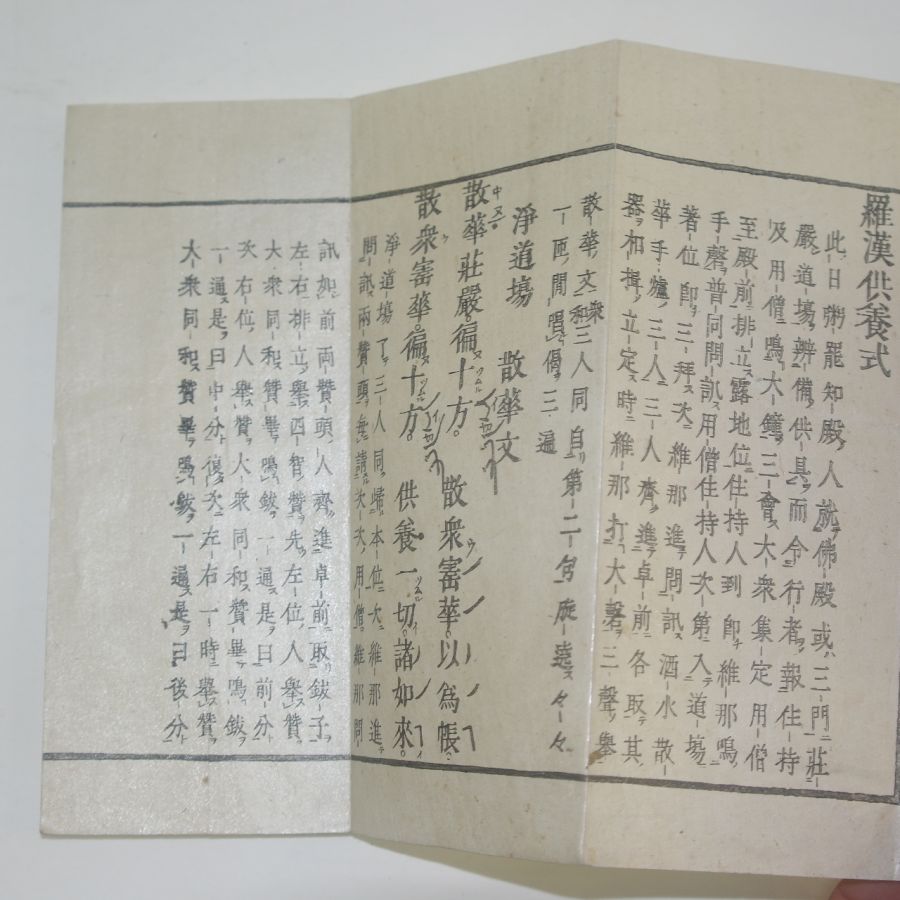 羅漢供養式
此日粥罷知殿人就佛殿或三門莊
嚴道場辨備供具而令行者報住持
及用僧鳴大鐘三會大衆集定用僧
至殿前排立露地位住持人到即維那鳴
手磬普同問訊用僧住持人次第入道場
著位即三拜次維那進問訊洒水散
華手爐三人三人齊進卓前各取其
器相揖立定時維那打大磬三聲舉
散華文衆和三人同自第二句旋遶々々
一匝間唱偈三遍
淨道場 散華文
散華莊嚴徧十方 散衆寶華以爲帳
散衆寶華徧十方 供養一切諸如來
淨道場了三人同歸本位次維那進
問訊兩贊頭請次次用僧維那問
訊如前兩贊頭人齊進卓前取鈸子
左右排立舉四智贊先左位人舉贊
大衆同和贊畢鳴鈸一通是曰前分
次右位人舉贊大衆同和贊畢鳴鈸
一通是曰中分復次左右一時舉贊
大衆同和贊畢鳴鈸一通是曰後分